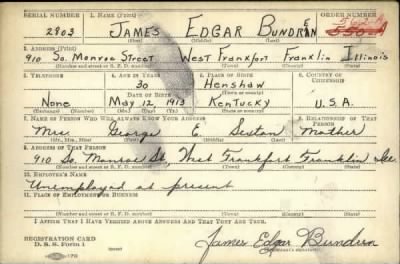 SERIAL NUMBER 1. NAME (Print) ORDER NUMBER
2803 JAMES EDGAR BUNDREN
(First) (Middle) (Last)
2. ADDRESS (Print)
910 So. Monroe Street West Frankfort Franklin Illinois
(Number and street or R. F. D. number) (Town) (County) (State)
3. TELEPHONE 4. AGE IN YEARS 5. PLACE OF BIRTH 6. COUNTRY OF CITIZENSHIP
30 Henshaw
DATE OF BIRTH (Town or county)
None May 12, 1913 Kentucky U.S.A.
(Mo.) (Day) (Yr.) (State or country)
7. NAME OF PERSON WHO WILL ALWAYS KNOW YOUR ADDRESS 8. RELATIONSHIP OF THAT PERSON
Mrs. George E. Sexton Mother
(Mr., Mrs., Miss) (First) (Middle) (Last)
9. ADDRESS OF THAT PERSON
910 So. Monroe St, West Frankfort Franklin Ill.
(Number and street or R. F. D. number) (Town) (County) (State)
10. EMPLOYER'S NAME
Unemployed at present
11. PLACE OF EMPLOYMENT OR BUSINESS
(Number and street or R. F. D. number) (Town) (County) (State)
I AFFIRM THAT I HAVE VERIFIED ABOVE ANSWERS AND THAT THEY ARE TRUE.
REGISTRATION CARD
D. S. S. Form 1
James Edgar Bundren
(Registrant's signature)